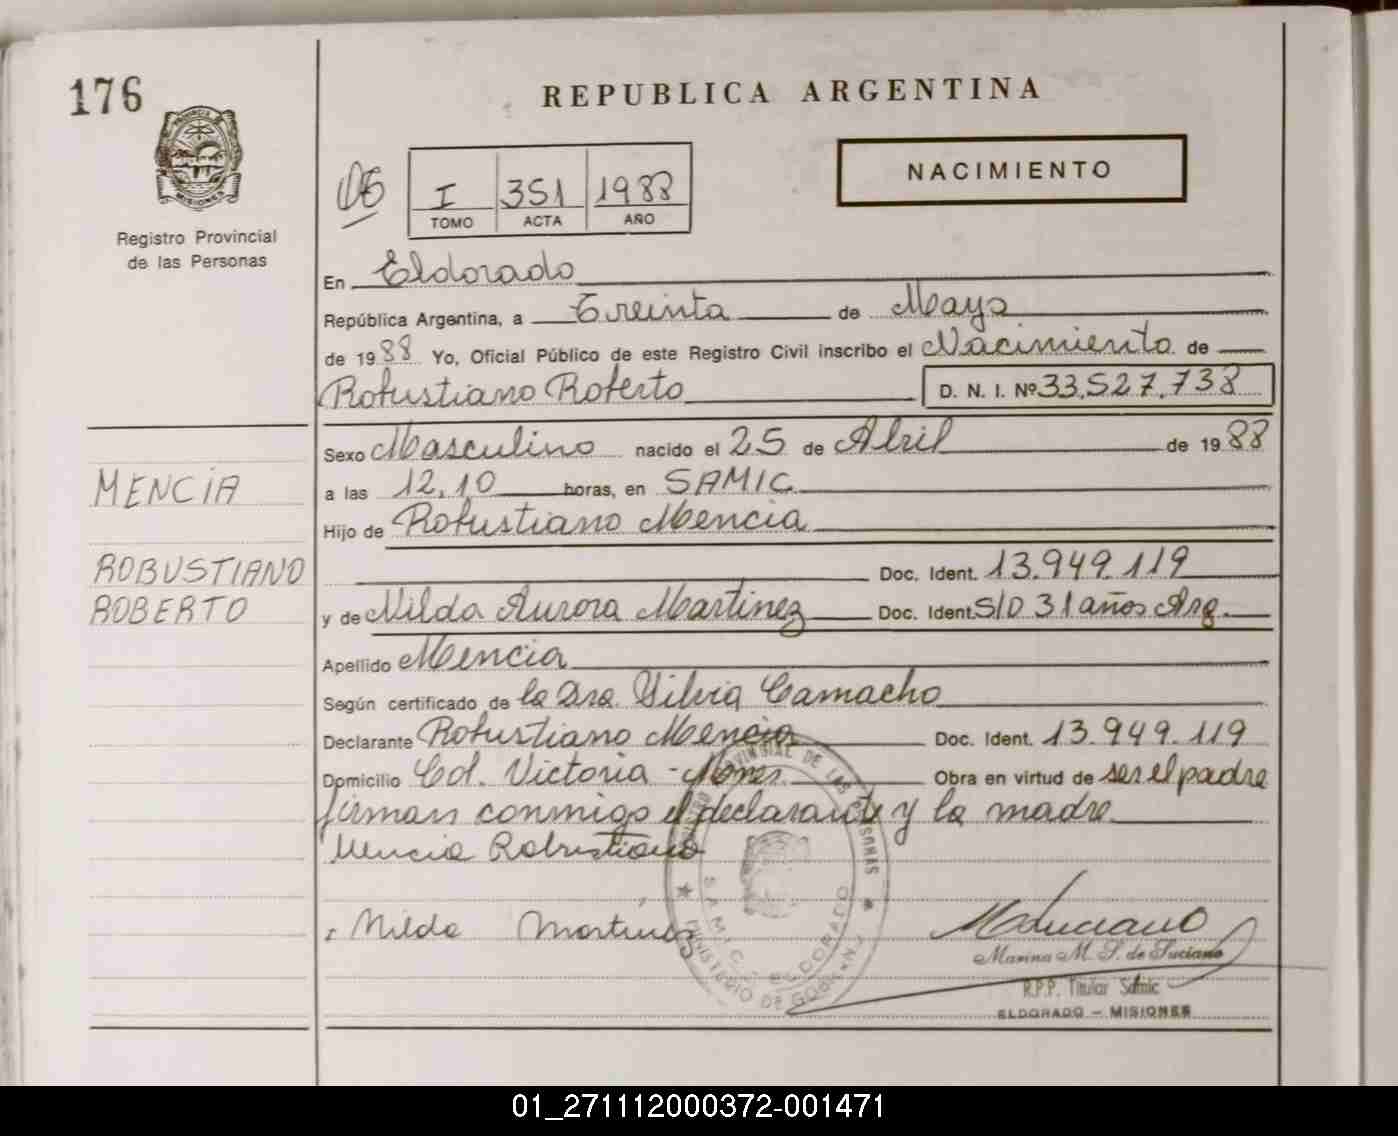 176
REPUBLICA ARGENTINA
NACIMIENTO
06
I 351 1988
TOMO ACTA AÑO
Registro Provincial
de las Personas
En Eldorado
República Argentina, a Treinta de Mayo
de 1988 Yo, Oficial Público de este Registro Civil inscribo el Nacimiento de
Robustiano Roberto D. N. I. Nº 33.527.738
Sexo Masculino nacido el 25 de Abril de 1988
MENCIA
a las 12,10 horas, en SAMIC
Hijo de Robustiano Mencia
ROBUSTIANO
ROBERTO
Doc. Ident. 13.949.119
y de Nilda Aurora Martinez Doc. Ident. S/D 31 años Arg.
Apellido Mencia
Según certificado de la Dra. Silvia Camacho
Declarante Robustiano Mencia Doc. Ident. 13.949.119
Domicilio Col. Victoria - Mnes. Obra en virtud de ser el padre
firman conmigo el declarante y la madre
Mencia Robustiano
Nilda Martinez
Marina M. S. de Luciano
R.P.P. Titular Samic
ELDORADO - MISIONES
REGISTRO PROVINCIAL DE LAS PERSONAS
S.A.M.I.C. - ELDORADO
MINISTERIO DE GOBIERNO
01_271112000372-001471